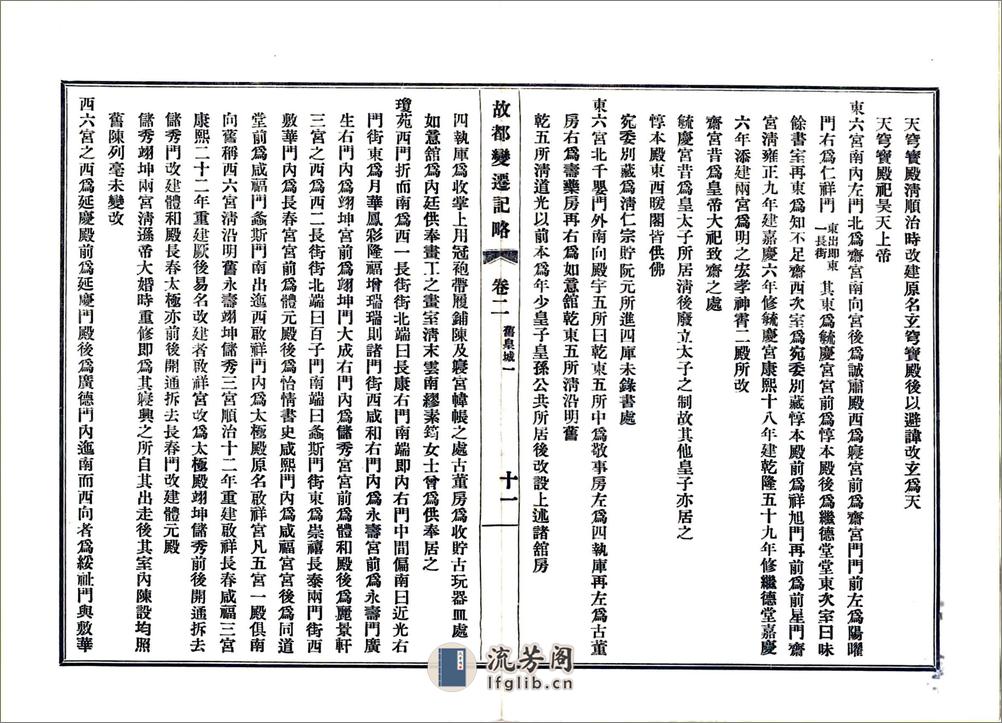 天穹寶殿清順治時改建原名玄穹寶殿後以避諱改玄爲天
天穹寶殿祀昊天上帝
東六宮南內左門北爲齋宮南向宮後爲誠肅殿西爲寢宮前爲齋宮門門前左爲陽曜
門右爲仁祥門東出卽東一長街其東爲毓慶宮宮前爲惇本殿後爲繼德堂堂東次室曰味
餘書室再東爲知不足齋西次室爲宛委別藏惇本殿前爲祥旭門再前爲前星門齋
宮清雍正九年建嘉慶六年修毓慶宮康熙十八年建乾隆五十九年修繼德堂嘉慶
六年添建兩宮爲明之宏孝神霄二殿所改
齋宮昔爲皇帝大祀致齋之處
毓慶宮昔爲皇太子所居清後廢立太子之制故其他皇子亦居之
惇本殿東西暖閣皆供佛
宛委別藏爲清仁宗貯阮元所進四庫未錄書處
東六宮北千嬰門外南向殿宇五所曰乾東五所中爲敬事房左爲四執庫再左爲古董
房右爲壽藥房再右爲如意館乾東五所清沿明舊
乾五所清道光以前本爲年少皇子皇孫公共所居後改設上述諸館房
故都變遷記略
卷二
舊皇城一
十一
四執庫爲收掌上用冠袍帶履鋪陳及寢宮幃帳之處古董房爲收貯古玩器皿處
如意館爲內廷供奉畫工之畫室清末雲南繆素筠女士曾爲供奉居之
瓊苑西門折而南爲西一長街街北端曰長康右門南端卽內右門中間偏南曰近光右
門街東爲月華鳳彩隆福增瑞瑞則諸門街西咸和右門內爲永壽宮前爲永壽門廣
生右門內爲翊坤宮前爲翊坤門大成右門內爲儲秀宮宮前爲體和殿後爲麗景軒
三宮之西爲西二長街街北端曰百子門南端曰螽斯門街東爲崇禧長泰兩門街西
敷華門內爲長春宮宮前爲體元殿後爲怡情書史咸熙門內爲咸福宮宮後爲同道
堂前爲咸福門螽斯門南出迤西啟祥門內爲太極殿原名啟祥宮凡五宮一殿俱南
向舊稱西六宮清沿明舊永壽翊坤儲秀三宮順治十二年重建啟祥長春咸福三宮
康熙二十二年重建厥後易名改建者啟祥宮改爲太極殿翊坤儲秀前後開通拆去
儲秀門改建體和殿長春太極亦前後開通拆去長春門改建體元殿
儲秀翊坤兩宮清遜帝大婚時重修卽爲其寢興之所自其出走後其室內陳設均照
舊陳列毫未變改
西六宮之西爲延慶殿前爲延慶門殿後爲廣德門內迤南而西向者爲綏祉門與敷華
流芳阁
lfglib.cn